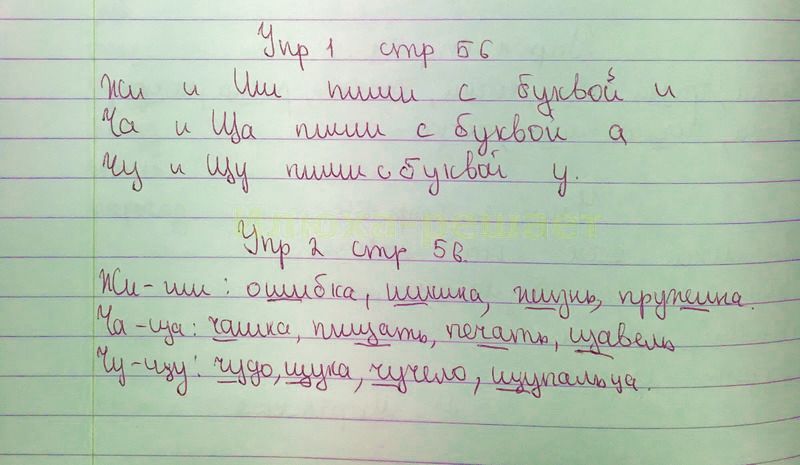 Упр 1 стр 56
Жи и Ши пиши с буквой и
Ча и Ща пиши с буквой а
Чу и Щу пиши с буквой у.
Упр 2 стр 56.
Жи-ши: ошибка, шишка, жизнь, пружина.
Ча-ща: чашка, пищать, печать, щавель
Чу-щу: чудо, щука, чучело, щупальца.